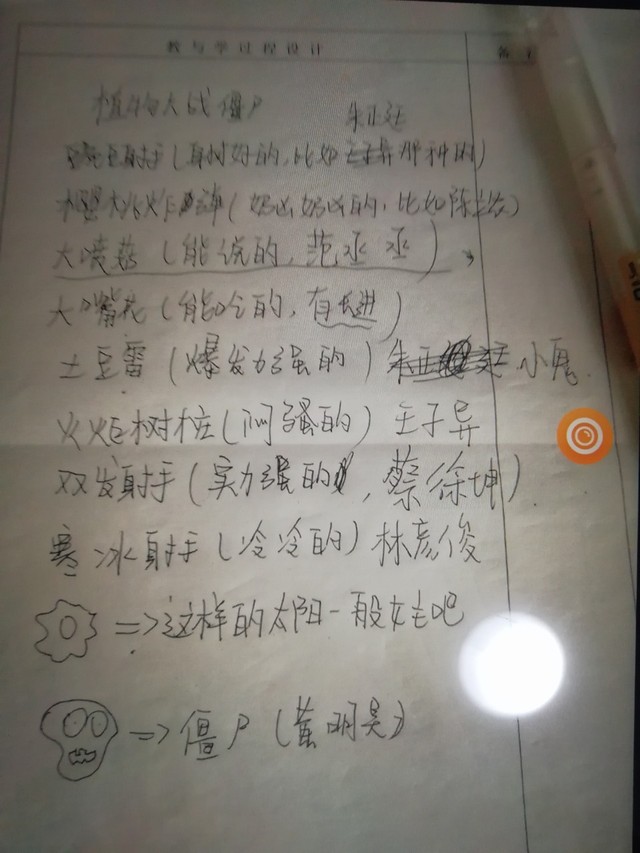 教与学过程设计
植物大战僵尸 朱正廷
豌豆射手（身材好的，比如王子异那种的）
樱桃炸弹（奶凶奶凶的，比如陈立农）
大喷菇（能说的，范丞丞）
大嘴花（能吃的，尤长靖）
土豆雷（爆发力强的）小鬼
火炬树桩（闷骚的）王子异
双发射手（实力强的，蔡徐坤）
寒冰射手（冷冷的）林彦俊
=>这样的太阳一般女主吧
=>僵尸（黄明昊）